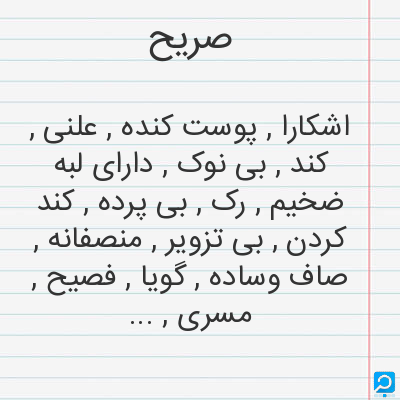 صریح
اشکارا , پوست کنده , علنی ,
کند , بی نوک , دارای لبه
ضخیم , رک , بی پرده , کند
کردن , بی تزویر , منصفانه ,
صاف وساده , گویا , فصیح ,
مسری , ...